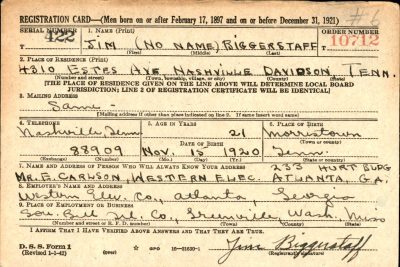 REGISTRATION CARD—(Men born on or after February 17, 1897 and on or before December 31, 1921)
SERIAL NUMBER 1. NAME (Print) ORDER NUMBER
422 JIM (NO NAME) BIGGERSTAFF 10712
2. PLACE OF RESIDENCE (Print)
4310 ESTES AVE NASHVILLE DAVIDSON TENN.
(Number and street) (Town, township, village, or city) (County) (State)
[THE PLACE OF RESIDENCE GIVEN ON THE LINE ABOVE WILL DETERMINE LOCAL BOARD
JURISDICTION; LINE 2 OF REGISTRATION CERTIFICATE WILL BE IDENTICAL]
3. MAILING ADDRESS
Same -
[Mailing address if other than place indicated on line 2. If same insert word same]
4. TELEPHONE 5. AGE IN YEARS 6. PLACE OF BIRTH
Nashville, Tenn 21 Morristown
DATE OF BIRTH (Town or county)
83909 Nov. 15 1920 Tenn.
(Exchange) (Number) (Mo.) (Day) (Yr.) (State or country)
7. NAME AND ADDRESS OF PERSON WHO WILL ALWAYS KNOW YOUR ADDRESS 233 HURT BLDG
MR. E. CARLSON, WESTERN ELEC. ATLANTA, GA.
8. EMPLOYER'S NAME AND ADDRESS
Western Elec. Co., Atlanta, Georgia
9. PLACE OF EMPLOYMENT OR BUSINESS
Sou. Bell Tel. Co., Greenville, Wash. Miss
(Number and street or R. F. D. number) (Town) (County) (State)
I AFFIRM THAT I HAVE VERIFIED ABOVE ANSWERS AND THAT THEY ARE TRUE.
D. S. S. Form 1 GPO
(Revised 1-1-42) (over) Jim Biggerstaff